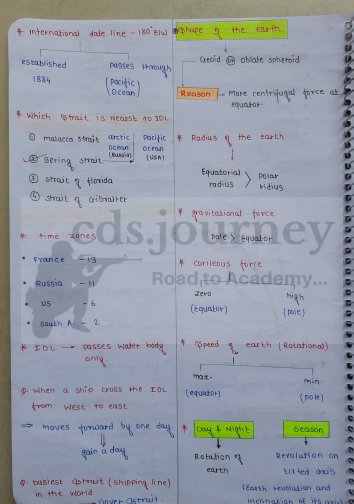 * International date line - 180° E/W
established
1884
passes through
(Pacific
Ocean)
* Which strait is Nearest to IDL
① malacca strait
② Bering strait
③ strait of florida
④ strait of Gibralter
arctic
ocean
(Russia)
pacific
ocean
(USA)
* Time zones
• France - 13
• Russia - 11
• US - 6
• south A. - 2
* IDL → passes water body
only.
Q. When a ship cross the IDL
from west to east
⇒ moves forward by one day
gain a day
Q. Busiest strait (shipping line)
in the world
→ Dover strait.
Shape of the earth
Geoid or oblate spheroid
Reason - More centrifugal force at
equator.
* Radius of the earth
Equatorial
radius > Polar
radius
* gravitational force
Pole > Equator
* Corileous force
zero
(Equator)
high
(pole)
* Speed of earth (Rotational)
max.
(equator)
min.
(pole)
* Day & Night
Rotation of
earth
Season
Revolution on
tilted axis
(earth revolution and
inclination of its axis)
cds.journey
Road to Academy...